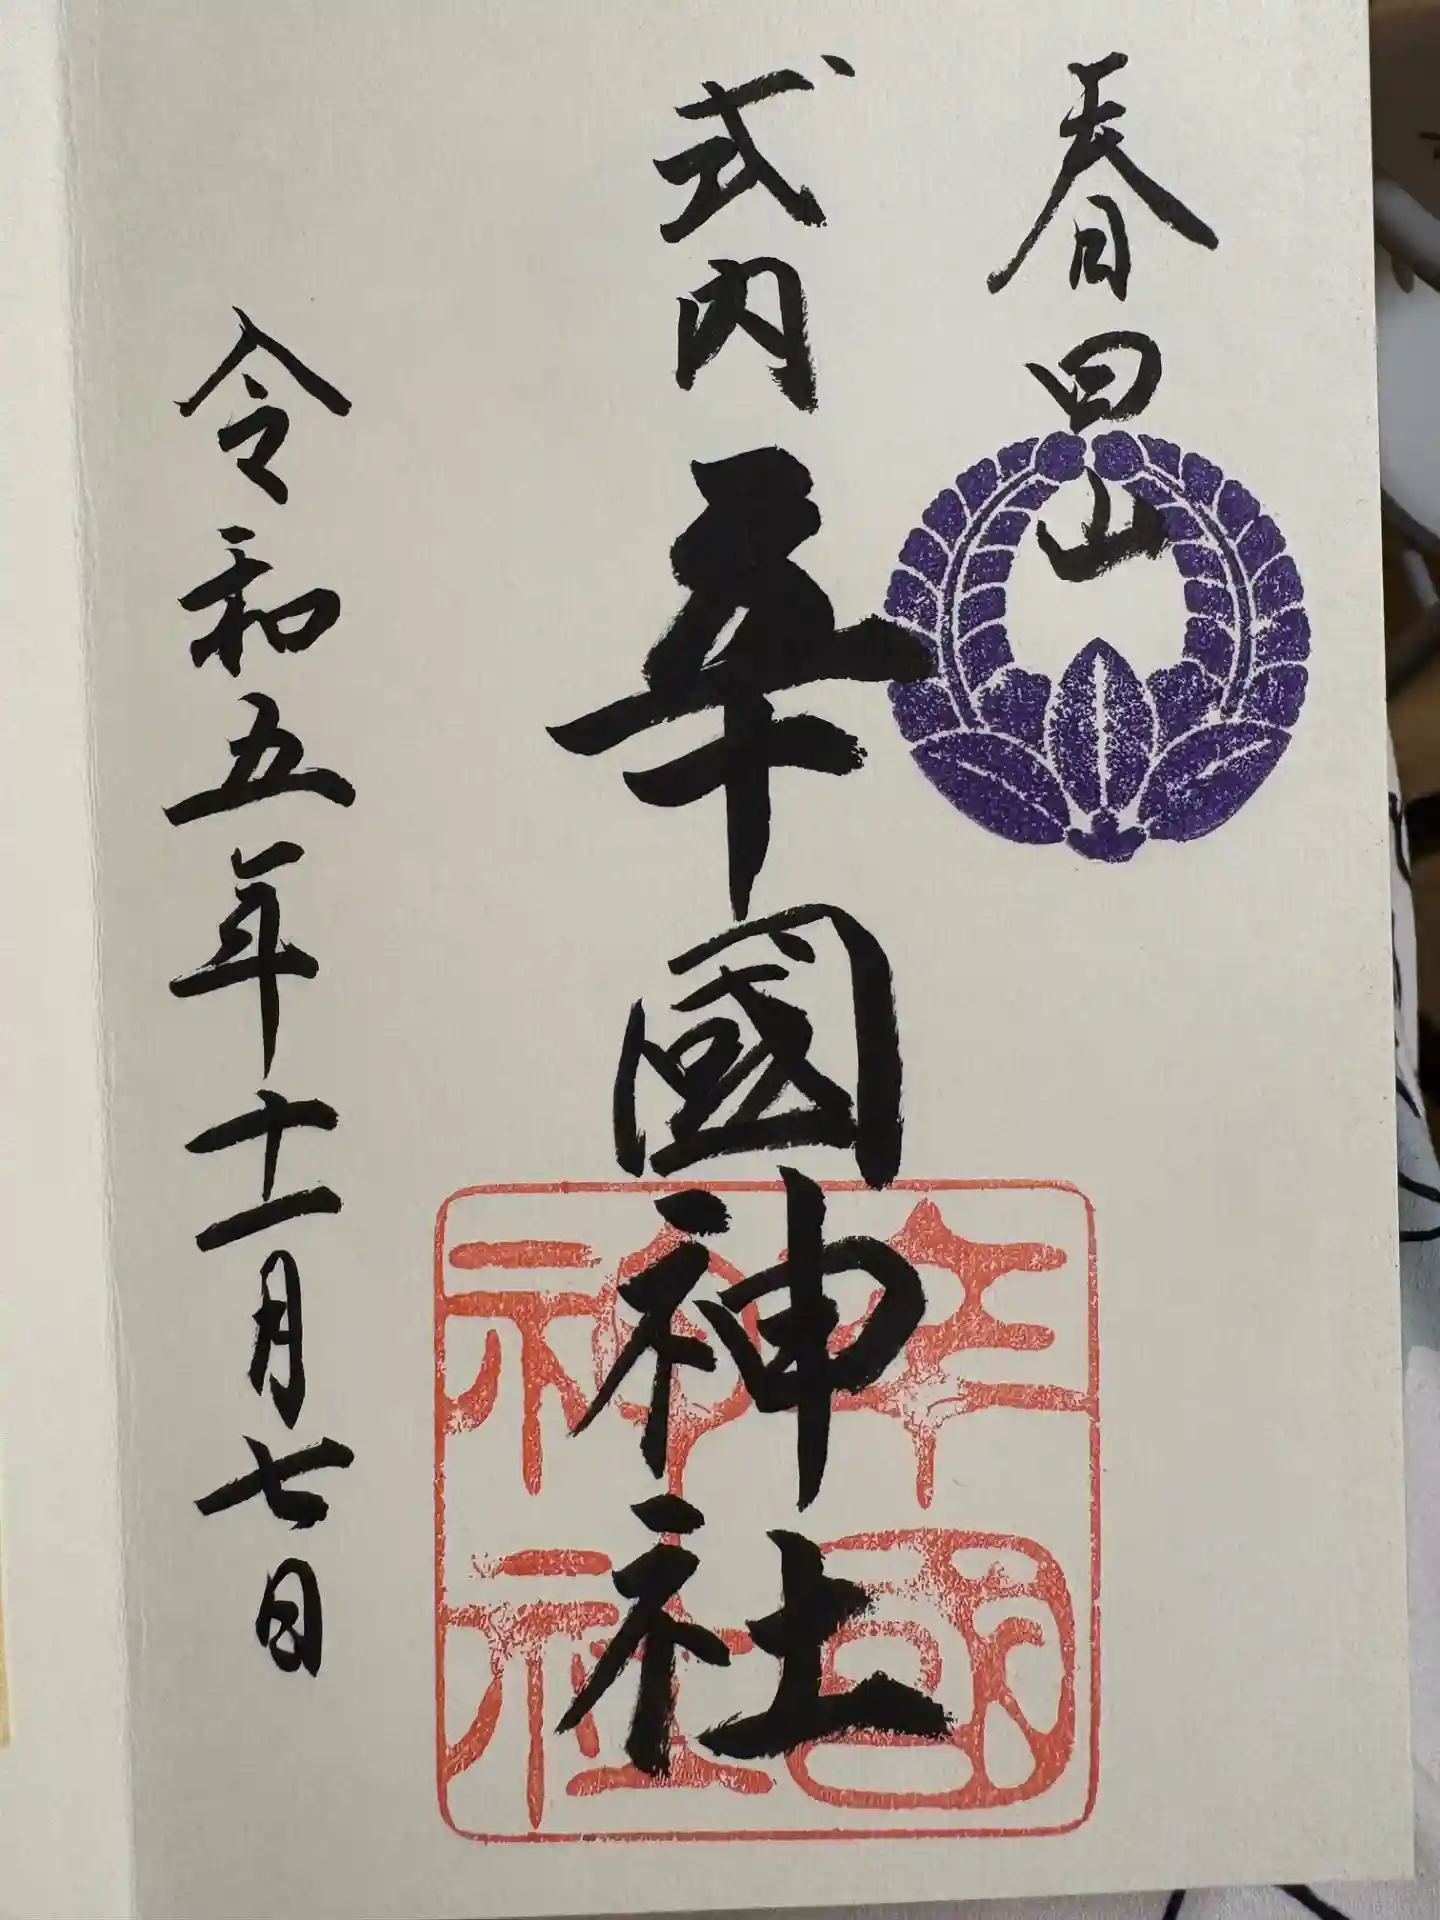 春日山
式内 辛國神社
令和五年十一月七日
辛國
神社